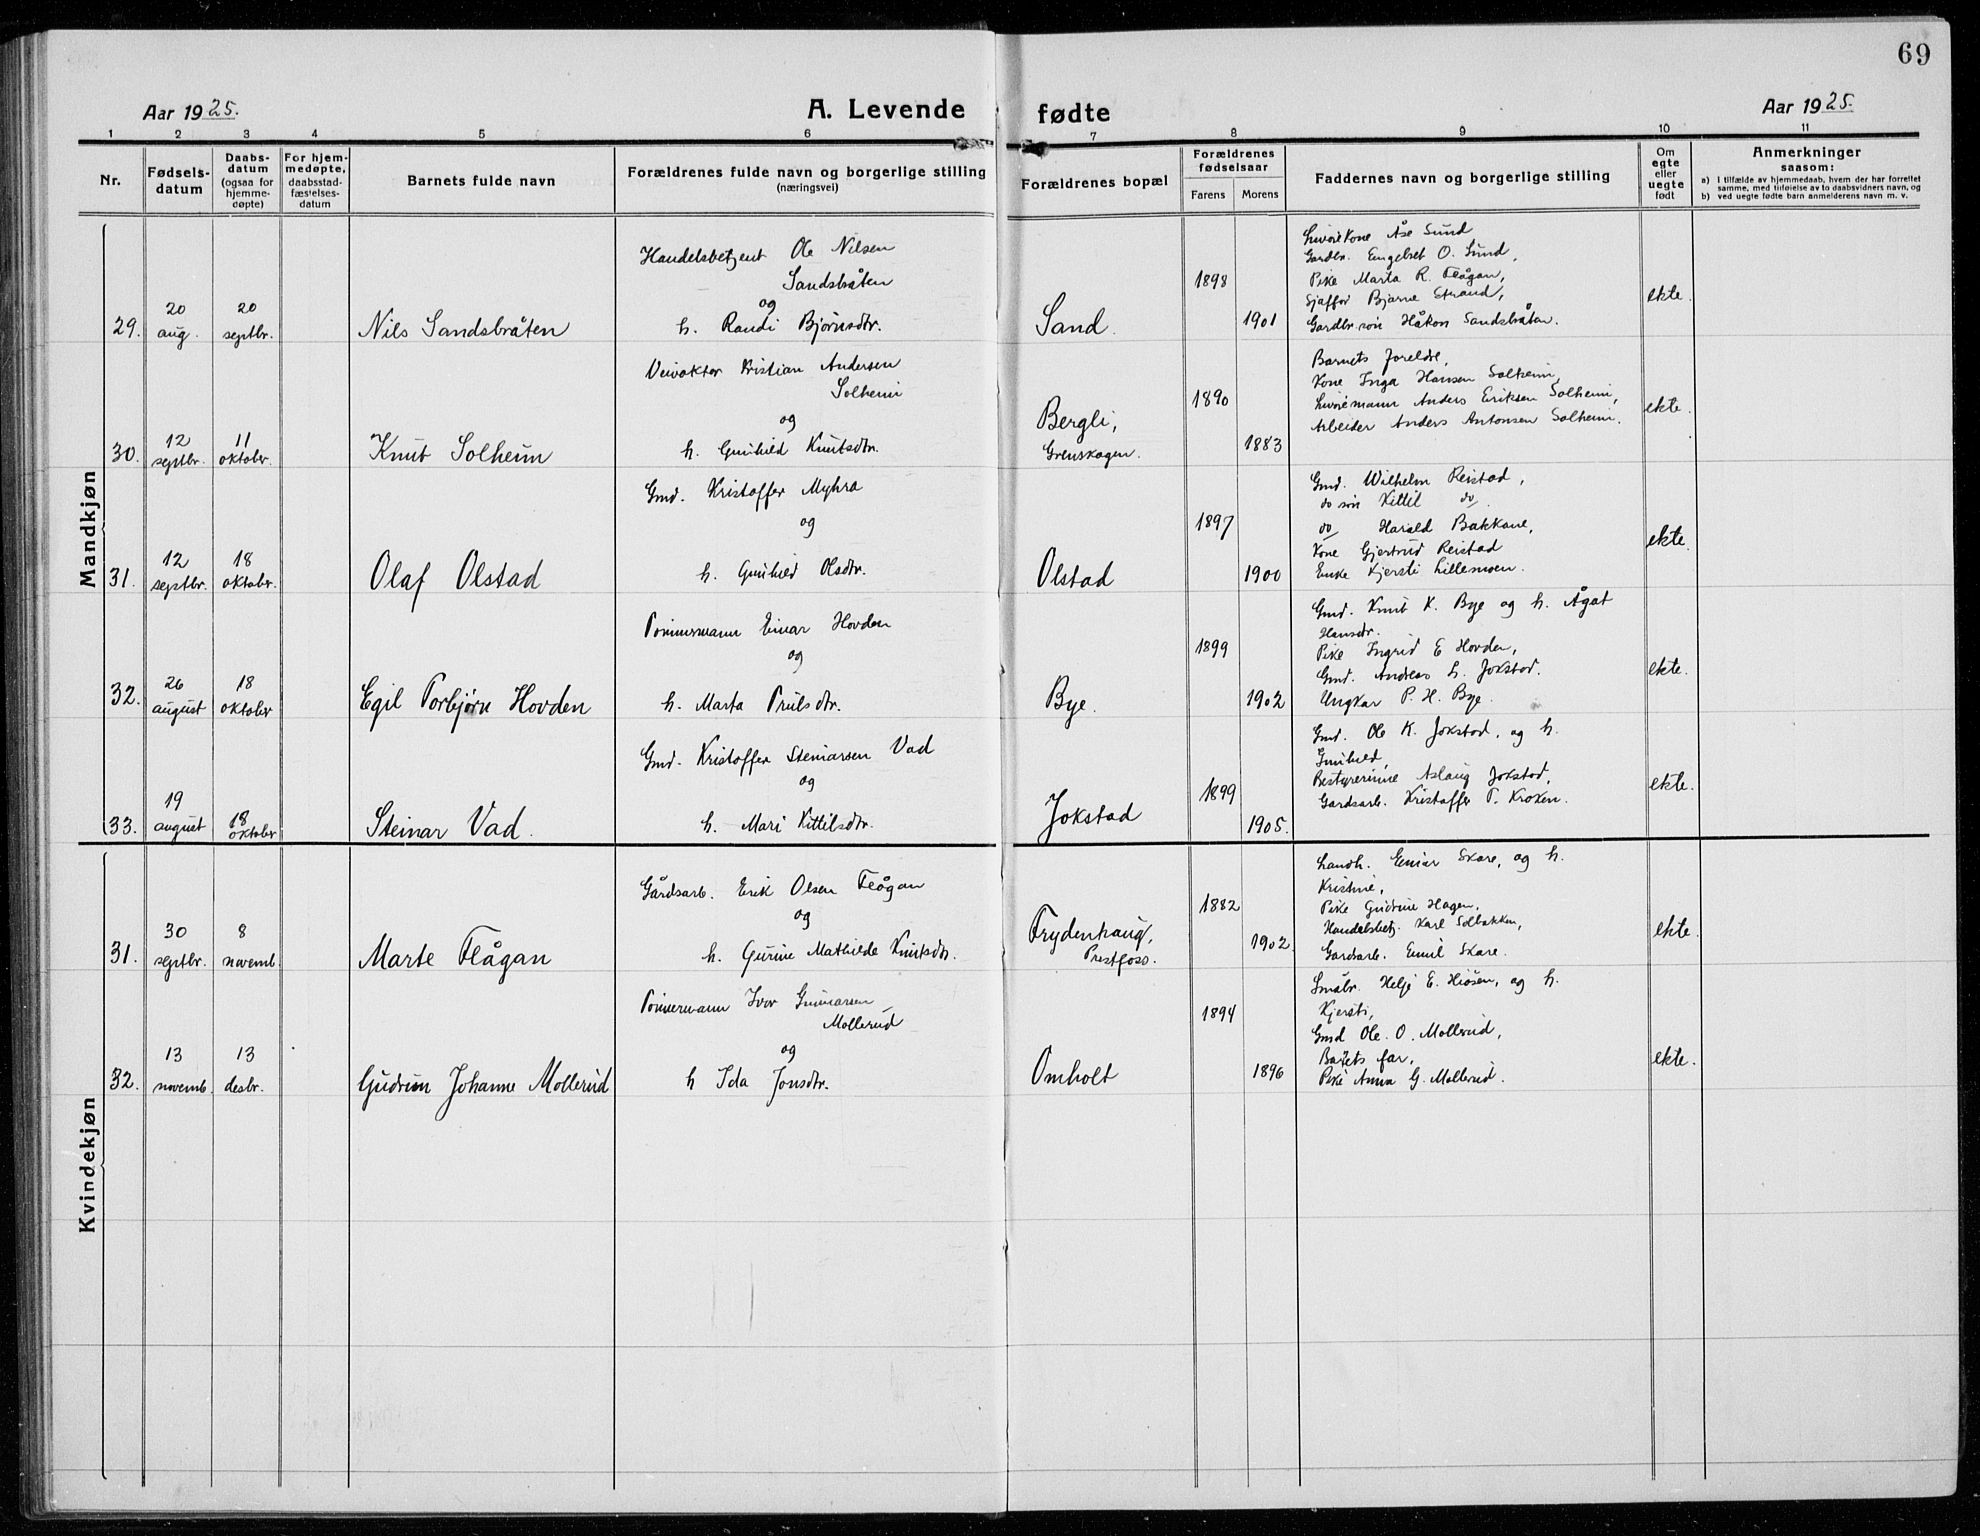 69
Aar 1925.
A. Levende fødte
Aar 1925.
1 2 3 4 5 6 7 8 9 10 11
Nr.
Fødsels-
datum
Daabs-
datum
(ogsaa for
hjemme-
døpte)
For hjem-
medøpte,
daabsstad-
fæstelses-
datum
Barnets fulde navn
Forældrenes fulde navn og borgerlige stilling
(næringsvei)
Forældrenes bopæl
Forældrenes
fødselsaar
Farens Morens
Faddernes navn og borgerlige stilling
Om
egte
eller
uegte
født
Anmerkninger
saasom:
a) I tilfælde av hjemmedaab, hvem der har forrettet
samme, med tilføielse av to daabsvidners navn, og
b) ved uegte fødte barn anmelderens navn m. v.
Mandkjøn
29.
20
aug.
20
septbr.
Nils Sandsbråten
Handelsbetjent Ole Nilsen
Sandsbråten
og
h. Randi Bjørnsdtr.
Sand.
1898
1901
Kone Åse Sund
Gardbr. Engebret O. Sund,
Pike Marta R. Flågan,
Sjaffør Bjarne Strand,
Gardbr. søn Håkon Sandsbråten.
ekte.
30.
12
septbr.
11
oktober.
Knut Solheim
Veivokter Kristian Andersen
Solheim
og
h. Gunhild Knutsdtr.
Bergli,
Grenskogen.
1890
1883
Barnets foreldre,
Kone Inga Hansen Solheim,
Anders Eriksen Solheim,
Arbeider Anders Antonsen Solheim.
ekte.
31.
12
septbr.
18
oktober.
Olaf Olstad
Gmd. Kristoffer Myhra
og
h. Gunhild Olsdtr.
Olstad
1897
1900
Gmd. Wilhelm Reistad,
do søn Kittil do.
do Harald Bakkane,
Kone Gjertrud Reistad
Enke Kjersti Lillemoen.
ekte.
32.
26
august
18
oktober
Egil Torbjørn Hovden
Tømmermann Einar Hovden
og
h. Marta Trulsdtr.
Bye.
1899
1902
Gmd. Knut K. Bye og h. Ågat
Hansdtr.
Pike Ingrid E Hovden,
Gmd. Andreas L. Jokstad.
Ungkar P. H. Bye.
ekte.
33.
19
august
18
oktober
Steinar Vad.
Gmd. Kristoffer Steinarsen Vad
og
h. Mari Kittilsdtr.
Jokstad
1899
1905.
Gmd. Ole K. Jokstad, og h.
Gunhild,
Bestyrerinne Aslaug Jokstad,
Gardsarb. Kristoffer T. Kroken.
ekte.
Kvindekjøn
31.
30
septbr.
8
novemb
Marte Flågan
Gårdsarb. Erik Olsen Flågan
og
h. Gurine Mathilde Knutsdtr.
Frydenhaug,
Prestfoss.
1882
1902
Landh. Einar Skare, og h.
Kristine,
Pike Gudrun Hagen,
Handelsbetj. Karl Solbakken,
Gardsarb. Emil Skare.
ekte.
32.
13
novemb.
13
desbr.
Gudrun Johanne Mollerud
Tømmermann Ivar Gunnarsen
Mollerud
og
h Ida Jonsdtr.
Omholt
1894
1896
Småbr. Helje E. Hiåsen, og h.
Kjersti,
Gmd Ole. O. Mollerud,
Barnets far,
Pike Anna G. Mollerud.
ekte.